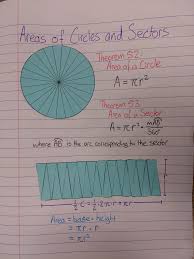 Areas of Circles and Sectors
Theorem 52:
Area of a Circle
A = πr²
Theorem 53:
Area of a Sector
A = πr² · mAB/360°
where AB is the arc corresponding to the sector
½ C = ½ · 2πr = πr
Area = base · height
= πr · r
= πr²